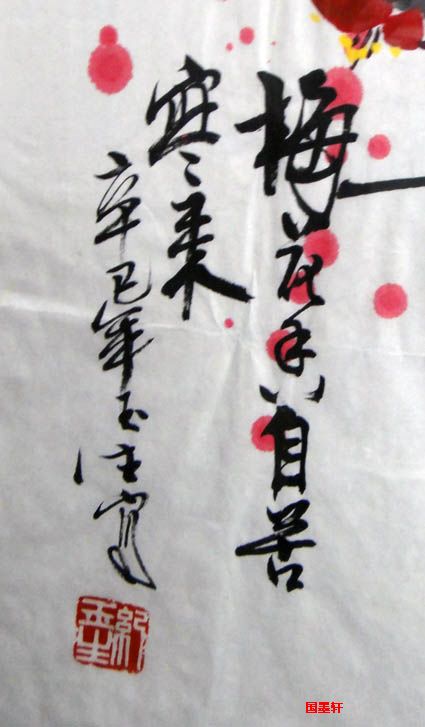 梅花香自苦
寒来
辛巳年玉生写
国墨轩